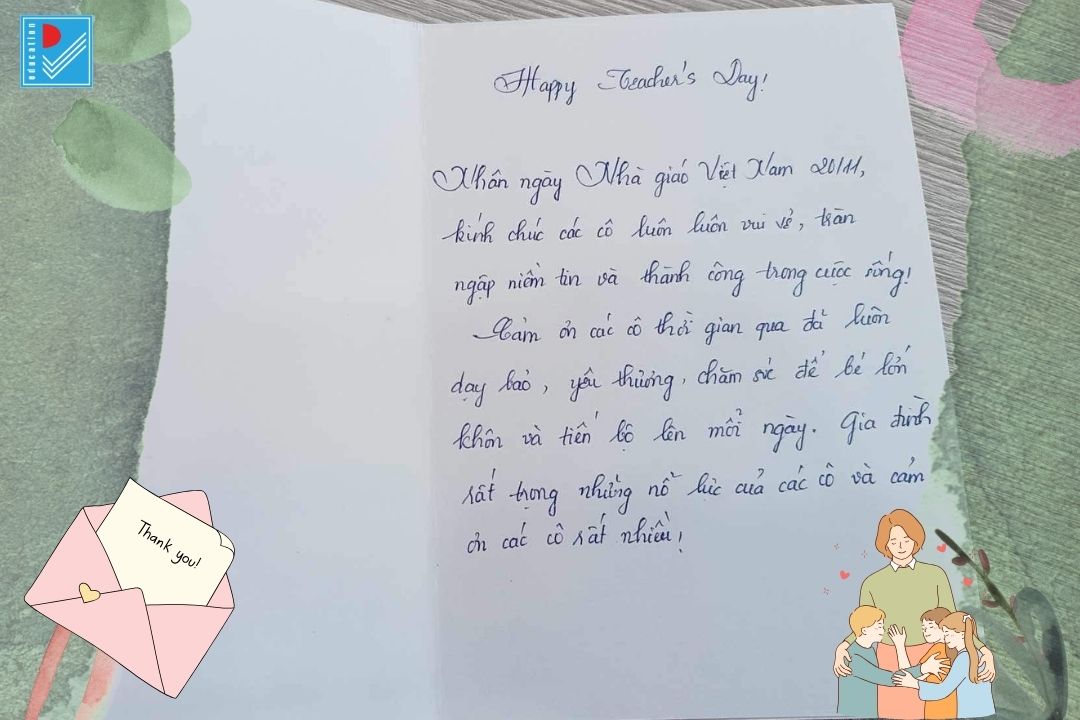 education
Happy Teacher's Day!
Nhân ngày Nhà giáo Việt Nam 20/11,
kính chúc các cô luôn luôn vui vẻ, tràn
ngập niềm tin và thành công trong cuộc sống!
Cảm ơn các cô thời gian qua đã luôn
dạy bảo, yêu thương, chăm sóc để bé lớn
khôn và tiến bộ lên mỗi ngày. Gia đình
rất trọng những nỗ lực của các cô và cảm
ơn các cô rất nhiều!
Thank you!